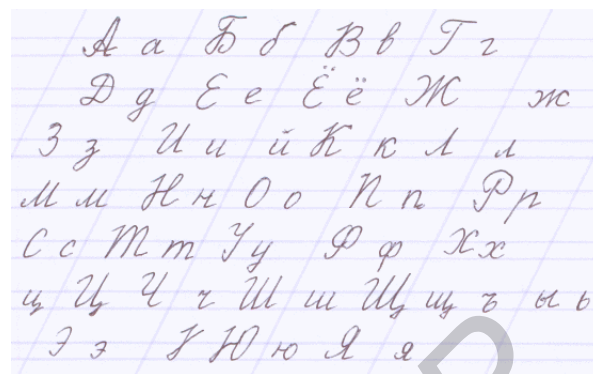 А а Б б В в Г г
Д д Е е Ё ё Ж ж
З з И и й К к Л л
М м Н н О о П п Р р
С с Т т У у Ф ф Х х
ц Ц Ч ч Ш ш Щ щ ъ ы ь
Э э Ю ю Я я